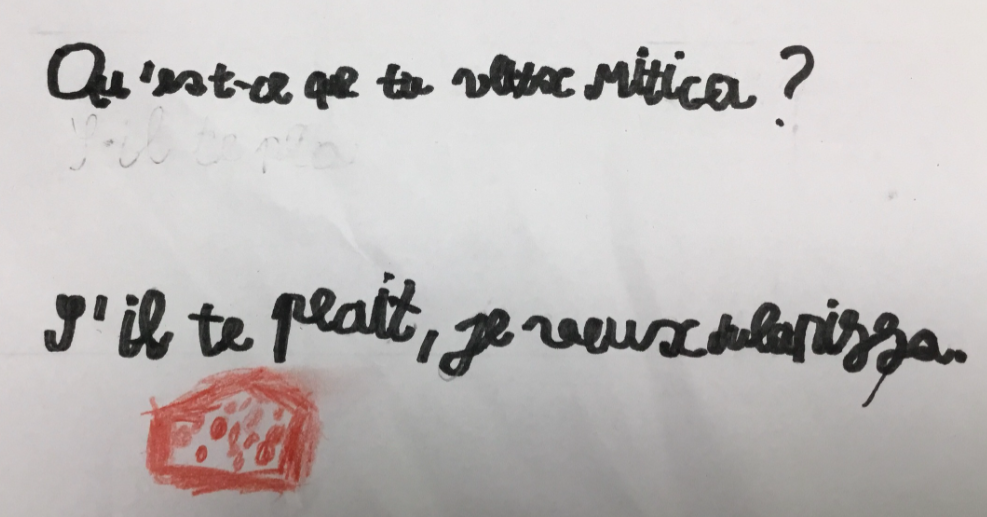 Qu'est-ce que tu veux Mitica ?
S'il te p
S'il te plaît, je veux de la pizza.